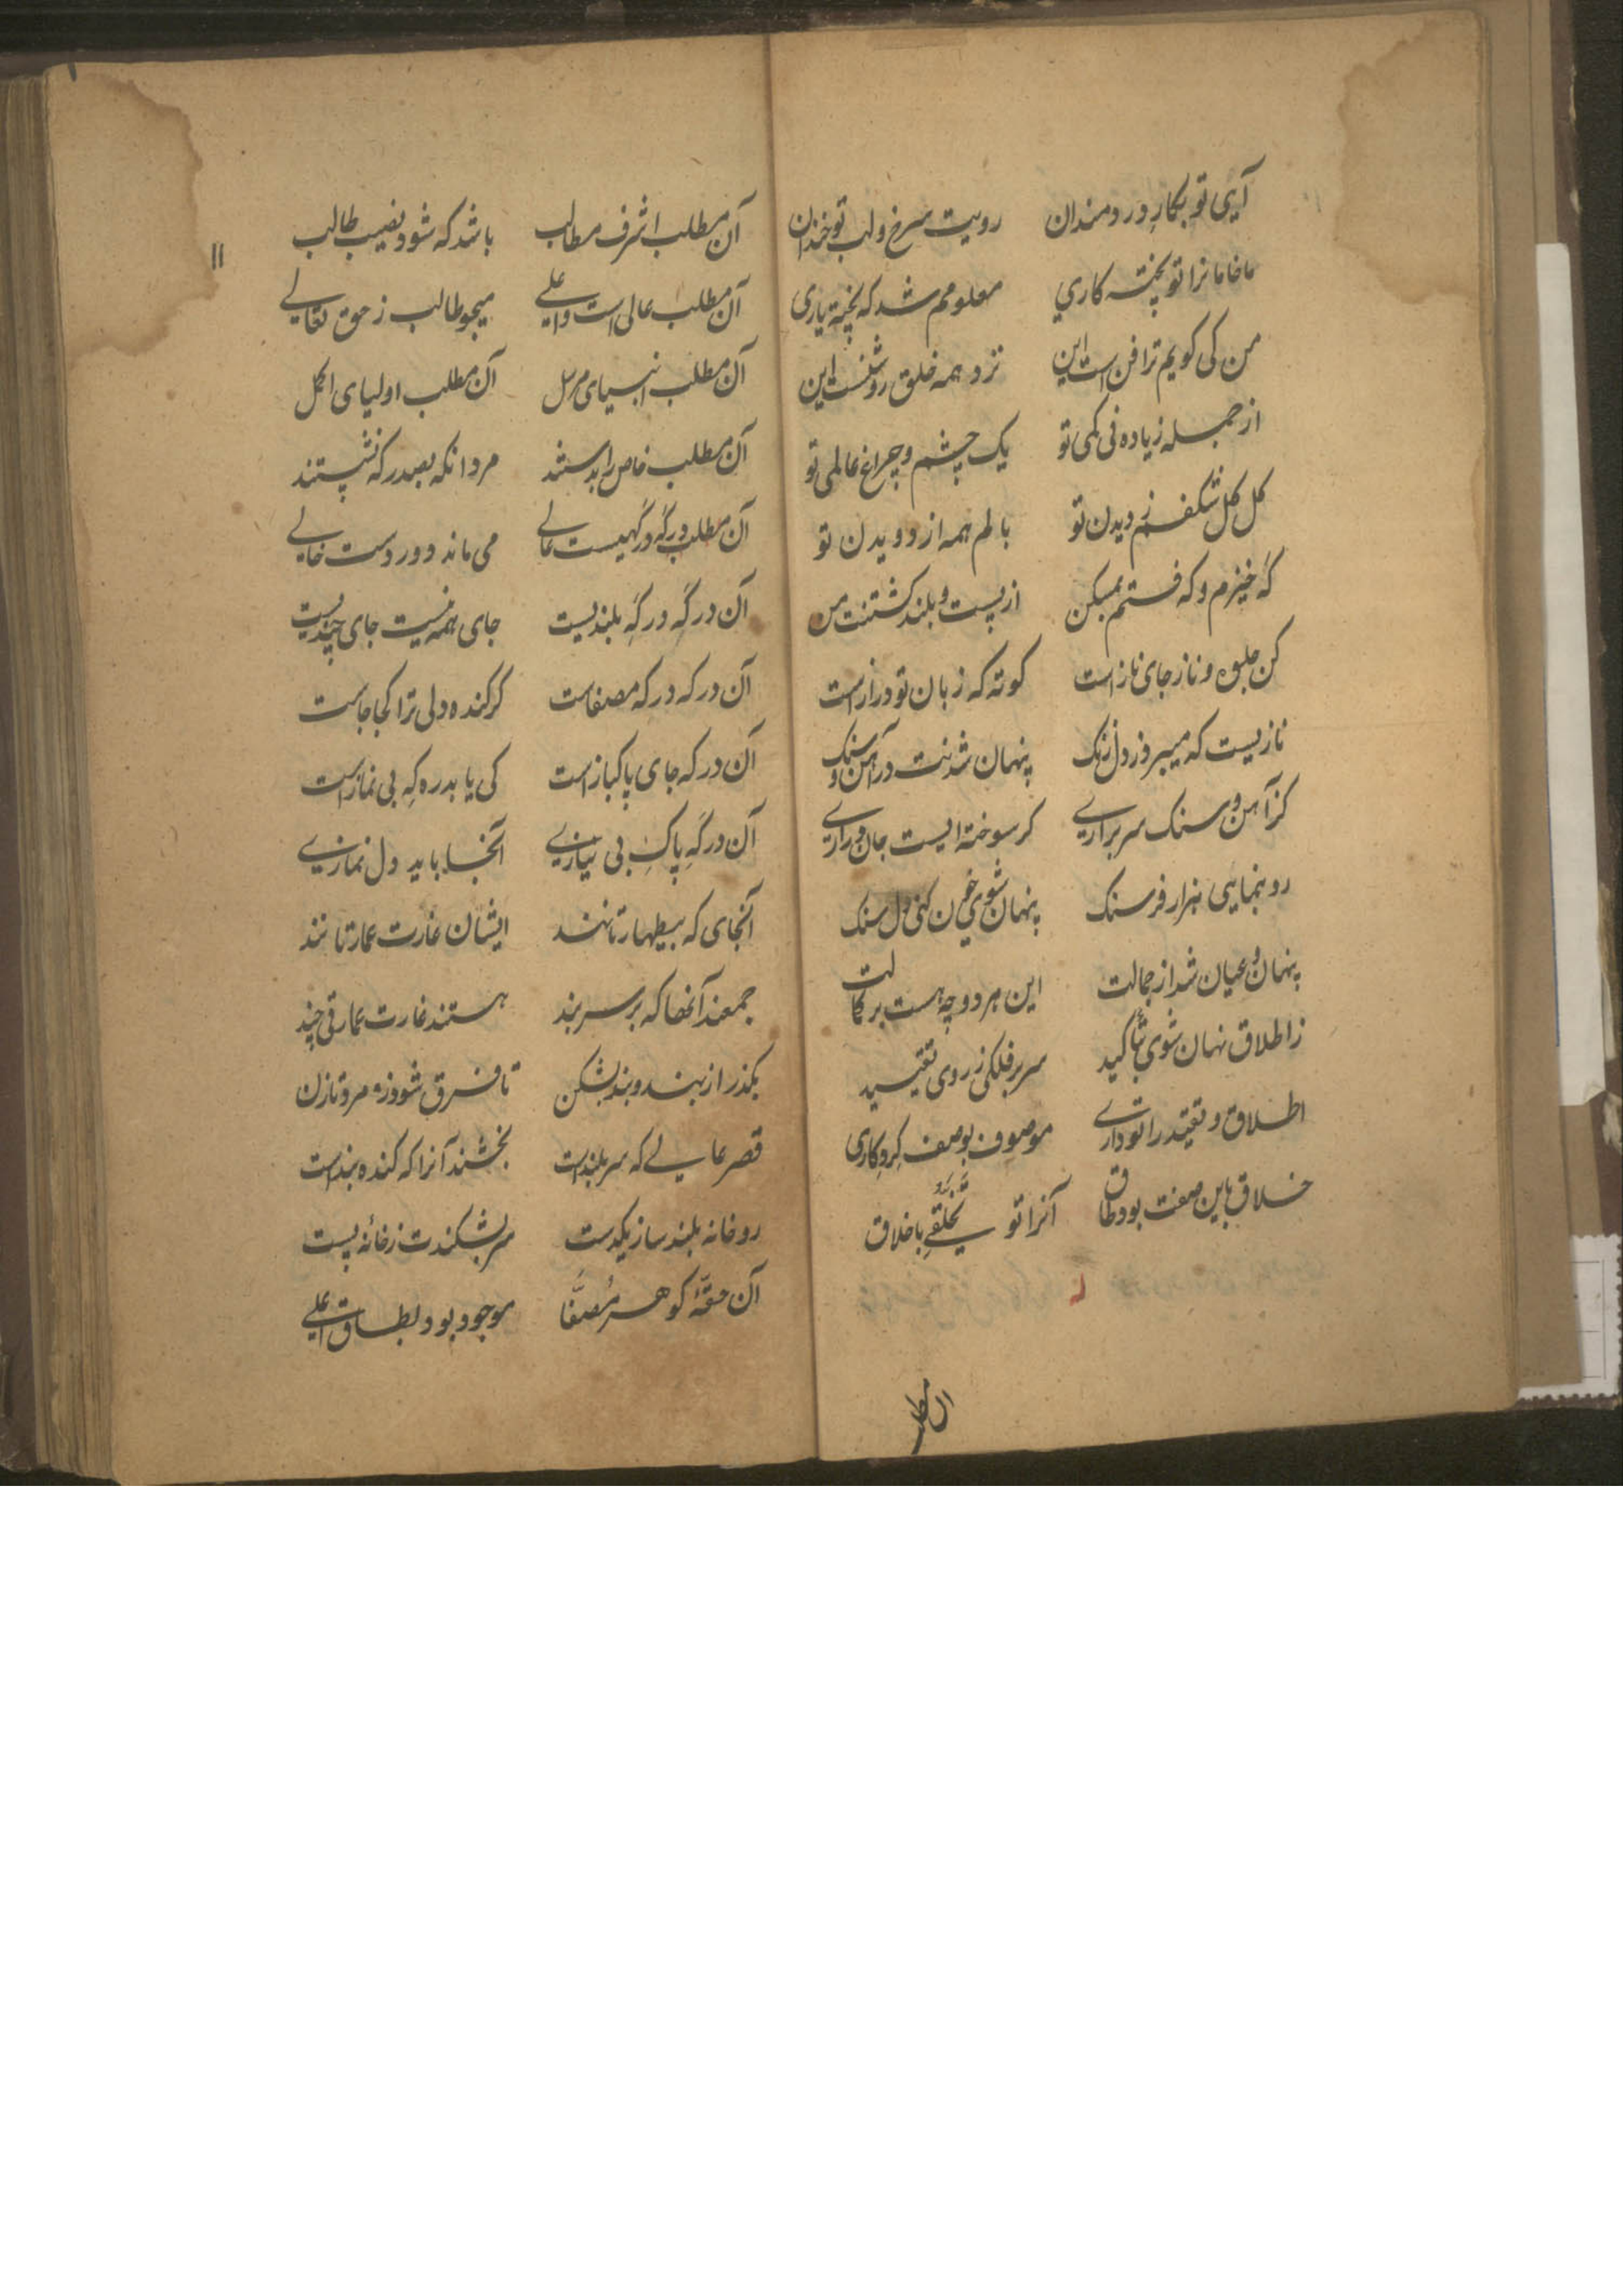 آیی تو بکارِ دردمندان رویت سرخ و لب تو خندان
ما خامانرا تو پخته کاری معلومم شد که پخته یاری
من کی کویم ترا فن است این نزد همه خلق روشنست این
از جمله زیاده نی کمی تو یک چشم و چراغ عالمی تو
کل کل شکفم ز دیدن تو بالم همه از دویدن تو
که خیزم و که فتم بمسکن از پست و بلند کشتنت من
کن جلوه و ناز جای ناز است کوته که زبان تو دراز است
نازیست که میبرد ز دل زنک پنهان شدنت در آهن و سنک
کز آهن و سنک سر براری کر سوخته ایست جان دراری
رو بنمایی هزار فرسنک پنهان شوی خون کنی دل سنک
پنهان و عیان شد از جمالت این هر دو چه هست بر کمالت
ز اطلاق نهان شوی بتأکید سر بر فلکی ز روی تقیید
اطلاق و تقیید را تو داری موصوف بوصف کردکاری
خلاق باین صفت بود طاق آنرا تو تخلقی باخلاق
آن مطلب
۱۱
آن مطلب اشرف مطالب باشد که شود نصیب طالب
آن مطلب عالی است و اعلی میجو طالب ز حق تعالی
آن مطلب انبیای مرسل آن مطلب اولیای اکمل
آن مطلب خاص را بدستند مردانکه بصدر که نشستند
آن مطلب درگه درگهیست عالی می ماند دور دست خالی
آن درگه درگهِ بلندیست جای همه نیست جای چندیست
آن درکه درکه مصفاست کر کنده دلی ترا کجا جاست
آن درکه جای پاکباز است کی یابد ره که بی نماز است
آن درگهِ پاکِ بی نیازی آنجا باید دل نمازی
آنجای که بیطهارتانند ایشان غارت عمارتانند
جمعند آنها که بر سر بند هستند غارت عمارتی چند
بکذر از بند و بند بشکن تا فرق شود ز مرد تا زن
قصر عالی که سر بلند است بخشند آنرا که کنده بند است
رو خانه بلند ساز یکدست سر بشکندت ز خانهٔ پست
آن حقهٔ کوهر مُصفّا موجود بود بطاق اعلی